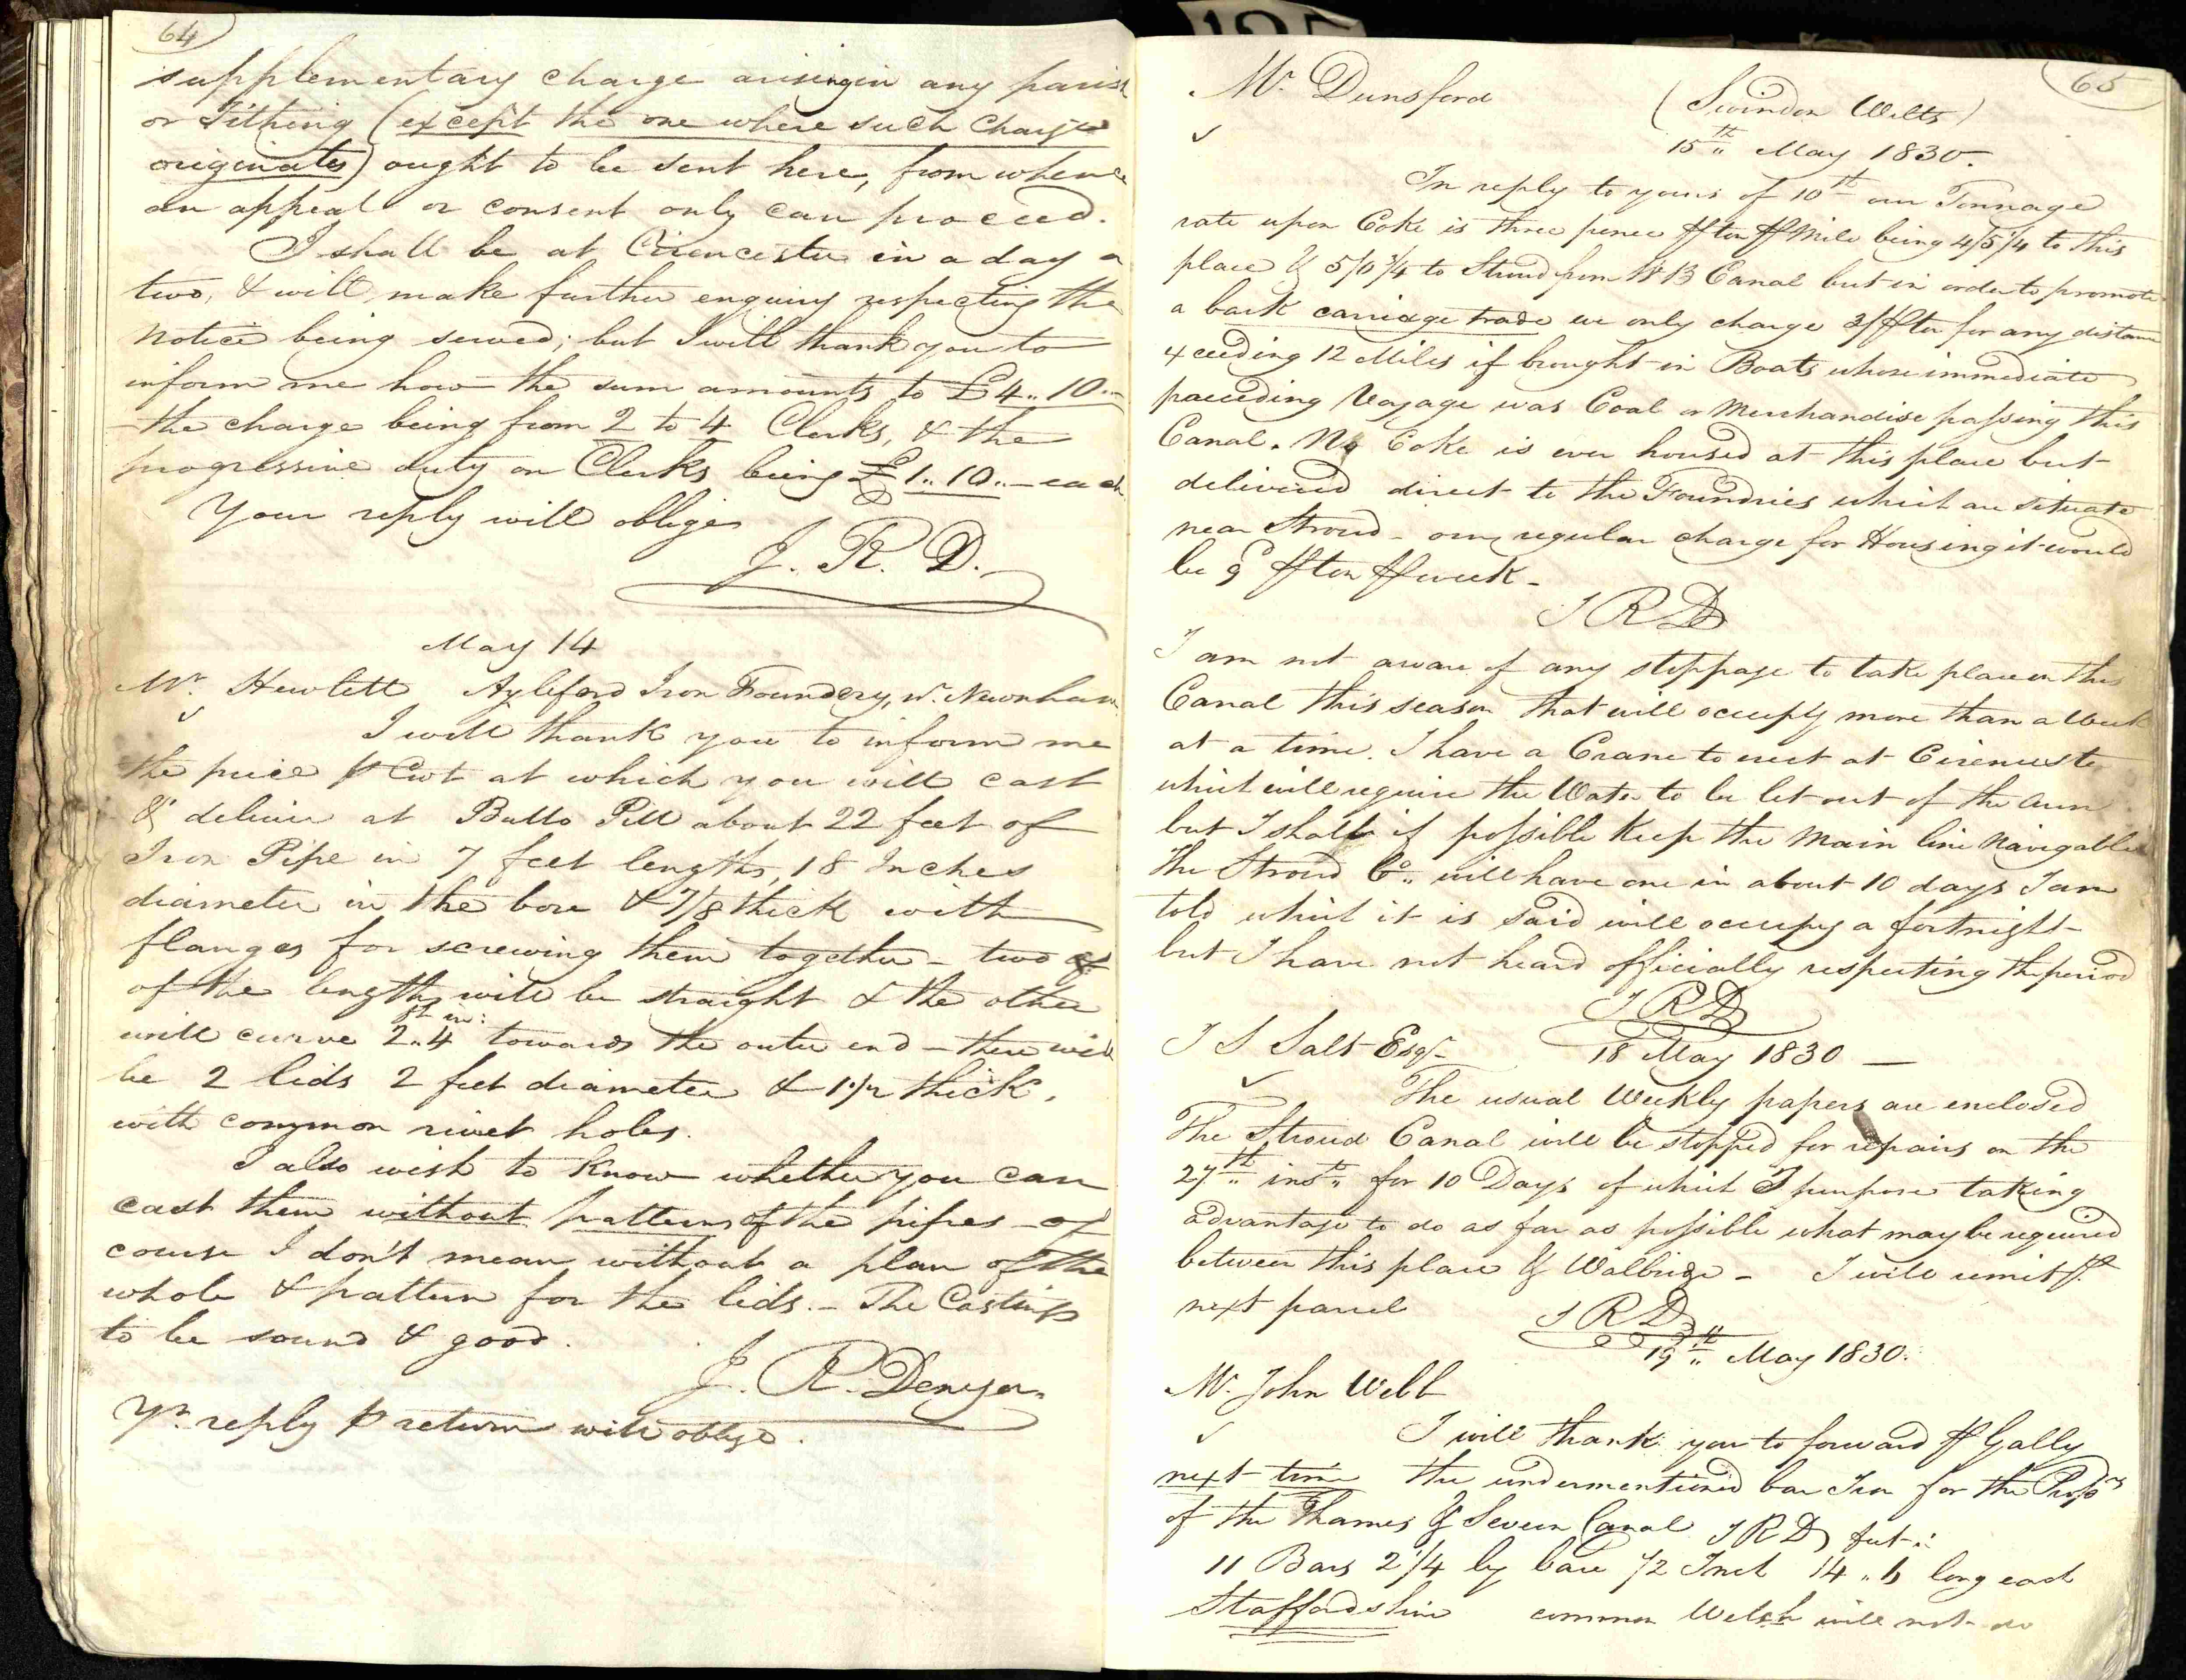 64
supplementary charge arising in any parish
or Tithing (except the one where such charge
originates) ought to be sent here, from whence
an appeal or consent only can proceed.
I shall be at Cirencester in a day or
two, & will make further enquiry respecting the
notice being served; but I will thank you to
inform me how the sum amounts to £4..10..-
the charge being from 2 to 4 Clerks, & the
progressive duty on Clerks being £1..10..- each
Your reply will oblige
J. R. D.
May 14
Mr. Hewlett Ayleford Iron Foundery, Nr. Newnham
I will thank you to inform me
the price p Cwt at which you will cast
& deliver at Bullo Pill about 22 feet of
Iron Pipe in 7 feet lengths, 18 Inches
diameter in the bore & 7/8 thick with
flanges for screwing them together - two of
of the lengths will be straight & the other
will curve 2..4 towards the outer end - there will
ft in:
be 2 lids 2 feet diameter & 1 1/2 thick,
with common rivet holes.
I also wish to know whether you can
cast them without patterns of the pipes - of
course I don't mean without a plan of the
whole & pattern for the lids. - The Castings
to be sound & good.
J. R. Denyer
Yr. reply p return will oblige.
65
Mr. Dunsford (Swindon Wilts)
15th May 1830.
In reply to yours of 10th our Tonnage
rate upon Coke is three pence p ton p Mile being 4/5 1/4 to this
place & 5/0 3/4 to Stroud from W B Canal but in order to promote
a back carriage trade we only charge 3/ p ton for any distance
exceeding 12 Miles if brought in Boats whose immediate
preceeding Voyage was Coal or Merchandise passing this
Canal. No Coke is ever housed at this place but
delivered direct to the Foundries which are situate
near Stroud - our regular charge for Housing it would
be 9d p ton p week -
J R D
I am not aware of any stoppage to take place on this
Canal this season that will occupy more than a Week
at a time. I have a Crane to erect at Cirencester
which will require the Water to be let out of the arm
but I shall if possible Keep the Main line Navigable
The Stroud Co. will have one in about 10 days I am
told which it is said will occupy a fortnight -
but I have not heard officially respecting the period
J R D
J S Salt Esqr 18 May 1830 -
The usual Weekly papers are enclosed
The Stroud Canal will be stopped for repairs on the
27th inst. for 10 Days of which I purpose taking
advantage to do as far as possible what may be required
between this place & Walbridge - I will remit p
next parcel
J R D
19th May 1830.
Mr. John Webb
I will thank you to forward p Gally
next time the undermentioned bar Iron for the Props
of the Thames & Severn Canal J R D feet i:
11 Bars 2 1/4 by bare 1/2 Inch 14..6 long each
Staffordshire common Welsh will not do